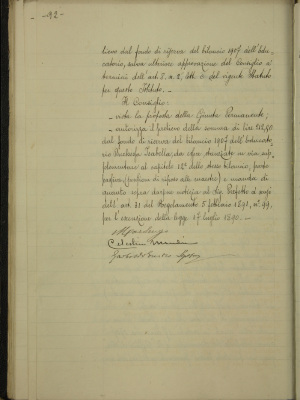 -92-
lievo dal fondo di riserva del bilancio 1907 dell'Edu-
catorio, salva ulteriore approvazione del Consiglio ai
termini dell'art. 5. a. 2. lett. c. del vigente Statuto
per questo Istituto. -
Il Consiglio:
- vista la proposta della Giunta Permanente;
- autorizza il prelievo della somma di lire 
dal fondo di riserva del bilancio 1907 dell'educato-
rio Duchessa Isabella; da esser in via sup-
plementare al capitolo 12° dello stesso bilancio, 
 e manda di
quanto sopra darsene notizia al Sig. Prefetto ai sensi
dell'art. 31 del Regolamento 5 febbraio 1891, n° 99,
per l'esecuzione della legge 17 luglio 1890. -